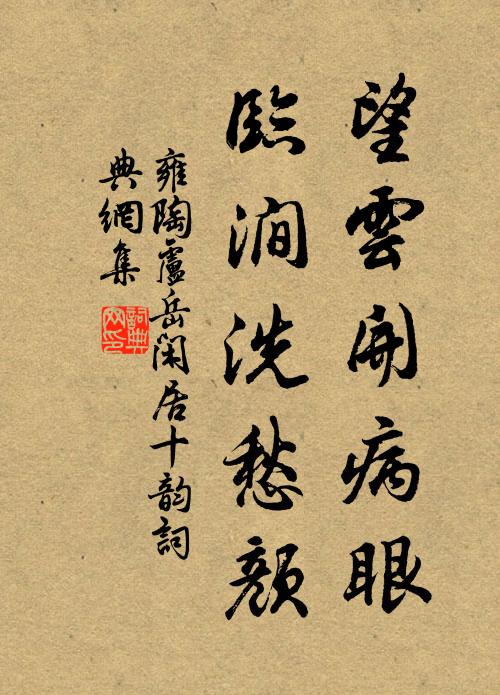 望雲開病眼
臨澗洗愁顔
雍陶盧岳閑居十韵詞
典網集
詞典
网印